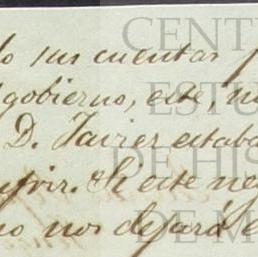 do sus cuentas
gobierno, este, no
D. Javier estaba
Si este ne
no nos dejará e
CENT
ESTU
DE HIS
DE M